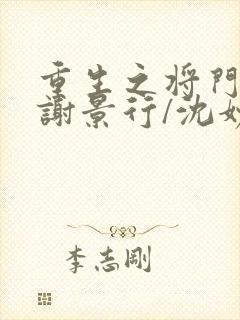 重生之将門
謝景行/沈妙
李志剛